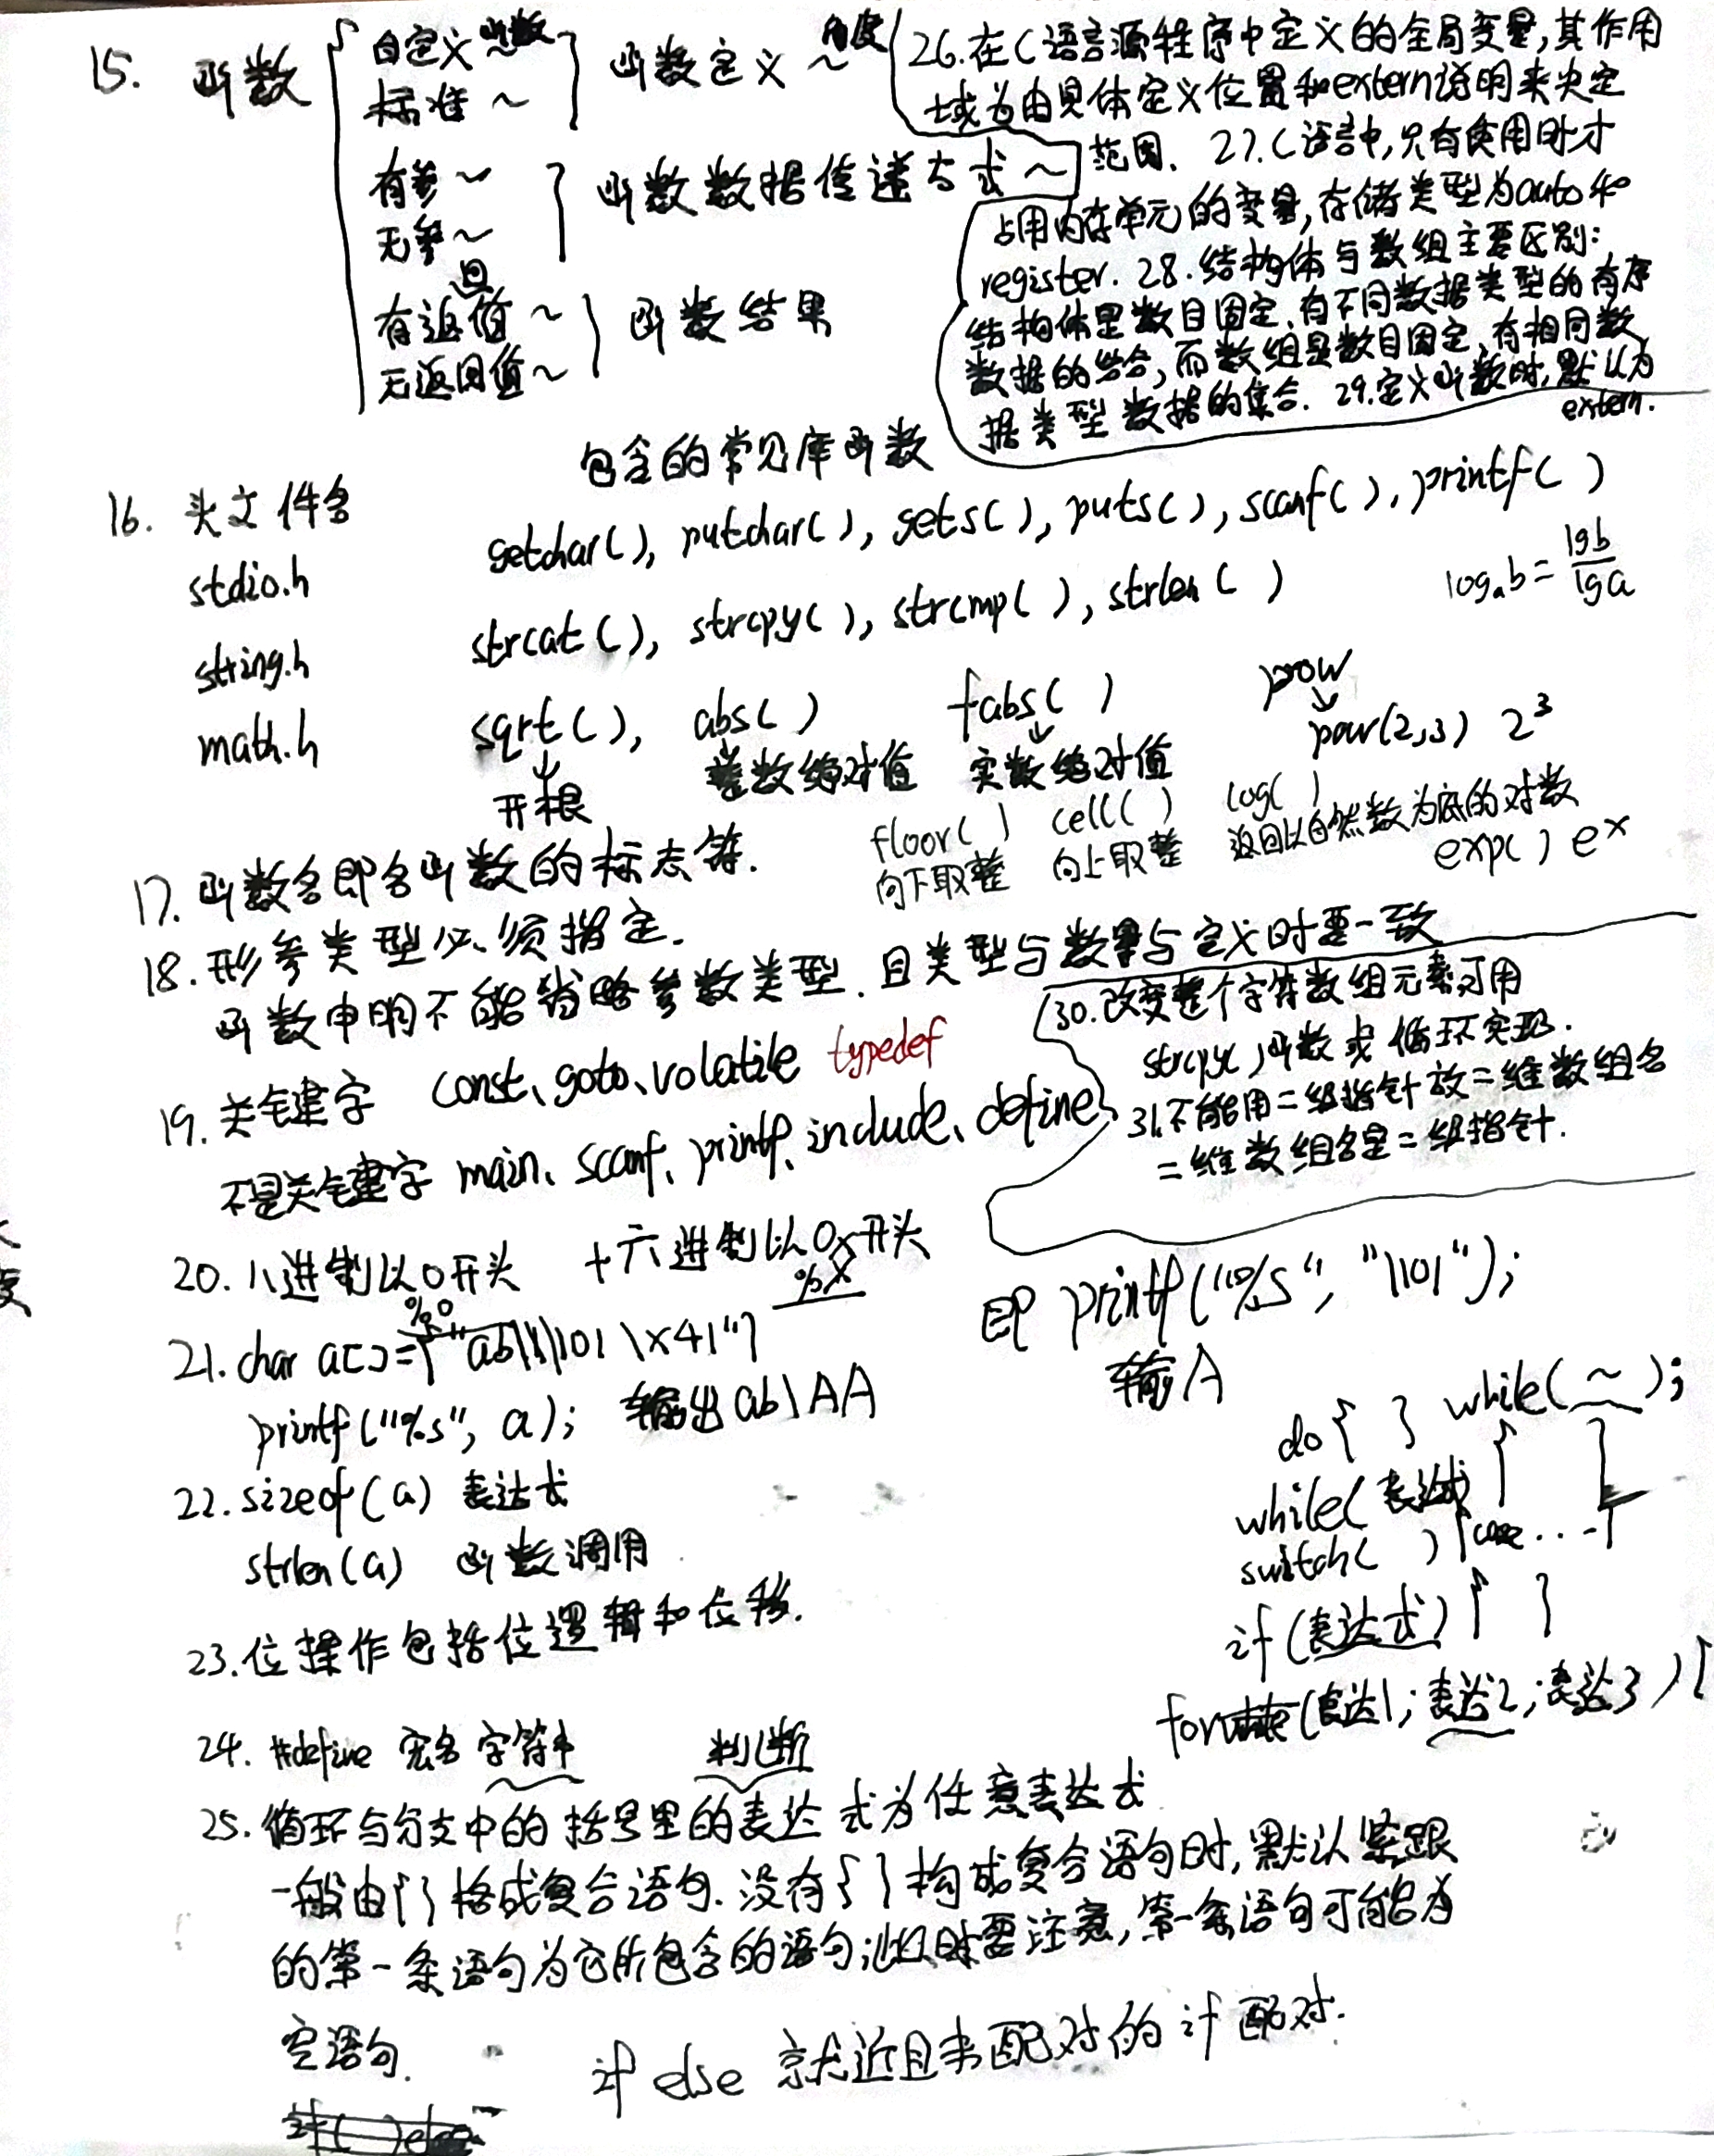 15. 函数
自定义函数
标准~
函数定义~角度
有参~
无参~
函数数据传递方式~
有返回值~
无返回值~
函数结果
26.在C语言源程序中定义的全局变量,其作用
域为由具体定义位置和extern说明来决定
范围. 27.C语言中,只有使用时才
占用内存单元的变量,存储类型为auto和
register. 28.结构体与数组主要区别:
结构体是数目固定,有不同数据类型的有序
数据的结合,而数组是数目固定,有相同数
据类型数据的集合. 29.定义函数时,默认为
extern.
16. 头文件名 包含的常见库函数
stdio.h getchar(), putchar(), gets(), puts(), scanf(), printf()
string.h strcat(), strcpy(), strcmp(), strlen()
logab=lgb/lga
math.h sqrt(), abs() fabs() pow
开根 整数绝对值 实数绝对值 pow(2,3) 2³
floor() cell() log()
向下取整 向上取整 返回以自然数为底的对数
exp() eˣ
17. 函数名即名函数的标志符.
18. 形参类型必须指定.
函数申明不能省略参数类型. 且类型与数量与定义时要一致
19. 关键字 const、goto、volatile typedef
不是关键字 main、scanf、printf、include、define
30.改变整个字符数组元素可用
strcpy()函数或循环实现.
31.不能用二级指针放二维数组名
二维数组名是二级指针.
20. 八进制以0开头 十六进制以0x开头
%o %x
21. char a[]={"ab\\\101\x41"}
printf("%s", a); 输出ab\AA
即 printf("%s", "\101");
输A
22. sizeof(a) 表达式
strlen(a) 函数调用
23. 位操作包括位逻辑和位移.
do{ } while(~);
while(表达式){ }
switch( ){case...}
if(表达式){ }
for(表达1;表达2;表达3){
24. #define 宏名 字符串 判断
25. 循环与分支中的括号里的表达式为任意表达式
一般由{}格成复合语句. 没有{}构成复合语句时,默认紧跟
的第一条语句为它所包含的语句,此时要注意,第一条语句可能为
空语句.
if else 就近且未配对的if配对.